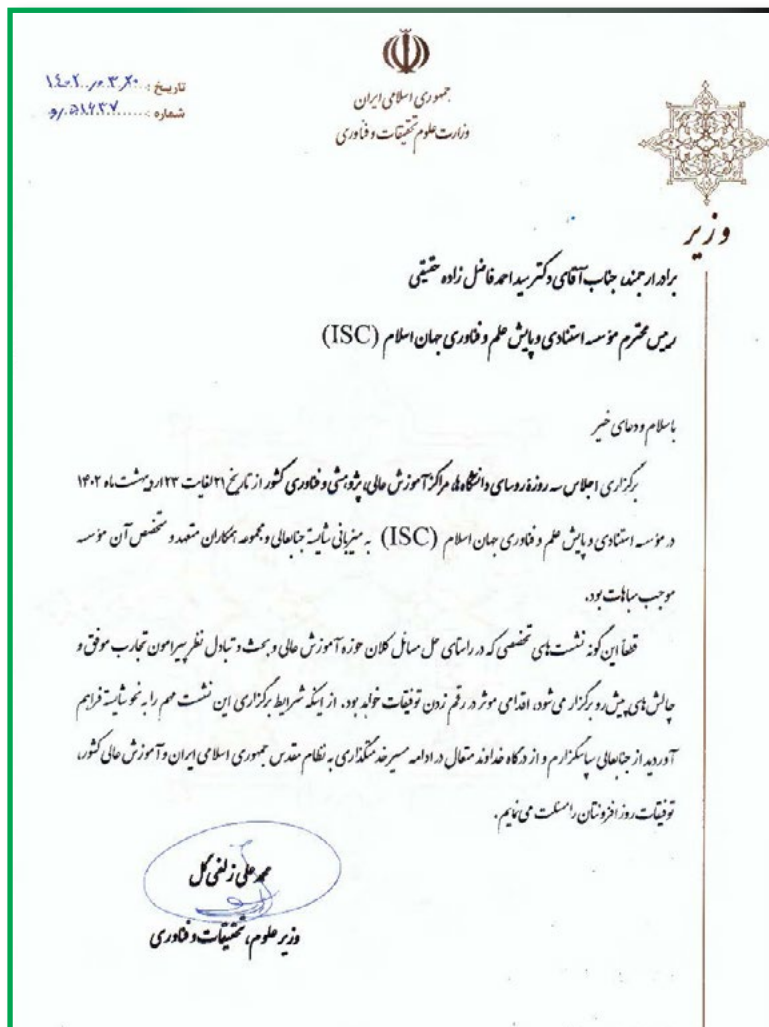 جمهوری اسلامی ایران
وزارت علوم تحقیقات و فناوری
تاریخ : ۱۴۰۲/۰۳/۲۰
شماره : ۵۱۶۳۷/و
وزیر
برادر ارجمند، جناب آقای دکتر سید احمد فاضل زاده حقیقی
رییس محترم مؤسسه استنادی و پایش علم و فناوری جهان اسلام (ISC)
با سلام و دعای خیر
برگزاری اجلاس سه روزة روسای دانشگاه ها، مراکز آموزش عالی، پژوهشی و فناوری کشور از تاریخ ۲۱ لغایت ۲۳ اردیبهشت ماه ۱۴۰۲
در مؤسسه استنادی و پایش علم و فناوری جهان اسلام (ISC) به میزبانی شایسته جنابعالی و مجموعه همکاران متعهد و متخصص آن مؤسسه
موجب مباهات بود.
قطعاً این گونه نشست های تخصصی که در راستای حل مسائل کلان حوزه آموزش عالی و بحث و تبادل نظر پیرامون تجارب موفق و
چالش های پیش رو برگزار می شود، اقدامی موثر در رقم زدن توفیقات خواهد بود. از اینکه شرایط برگزاری این نشست مهم را به نحو شایسته فراهم
آوردید از جنابعالی سپاسگزارم و از درگاه خداوند متعال در ادامه مسیر خدمتگذاری به نظام مقدس جمهوری اسلامی ایران و آموزش عالی کشور،
توفیقات روز افزونتان را مسئلت می نمایم.
محمد علی زلفی گل
وزیر علوم، تحقیقات و فناوری